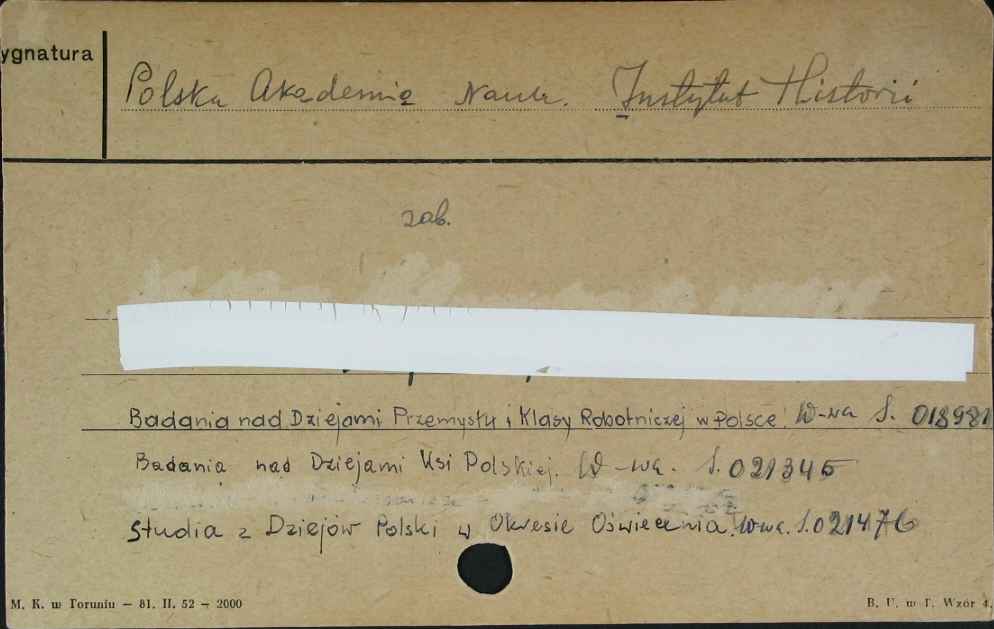 ygnatura
Polska Akademia Nauk. Instytut Historii
zob.
Badania nad Dziejami Przemysłu i Klasy Robotniczej w Polsce W-wa S. 018981
Badania nad Dziejami Wsi Polskiej. W-wa. S. 021345
Studia z Dziejów Polski w Okresie Oświecenia. Wwa. S. 021476
M. K. w Toruniu — 81. II. 52 — 2000
B. U. w T. Wzór 4.